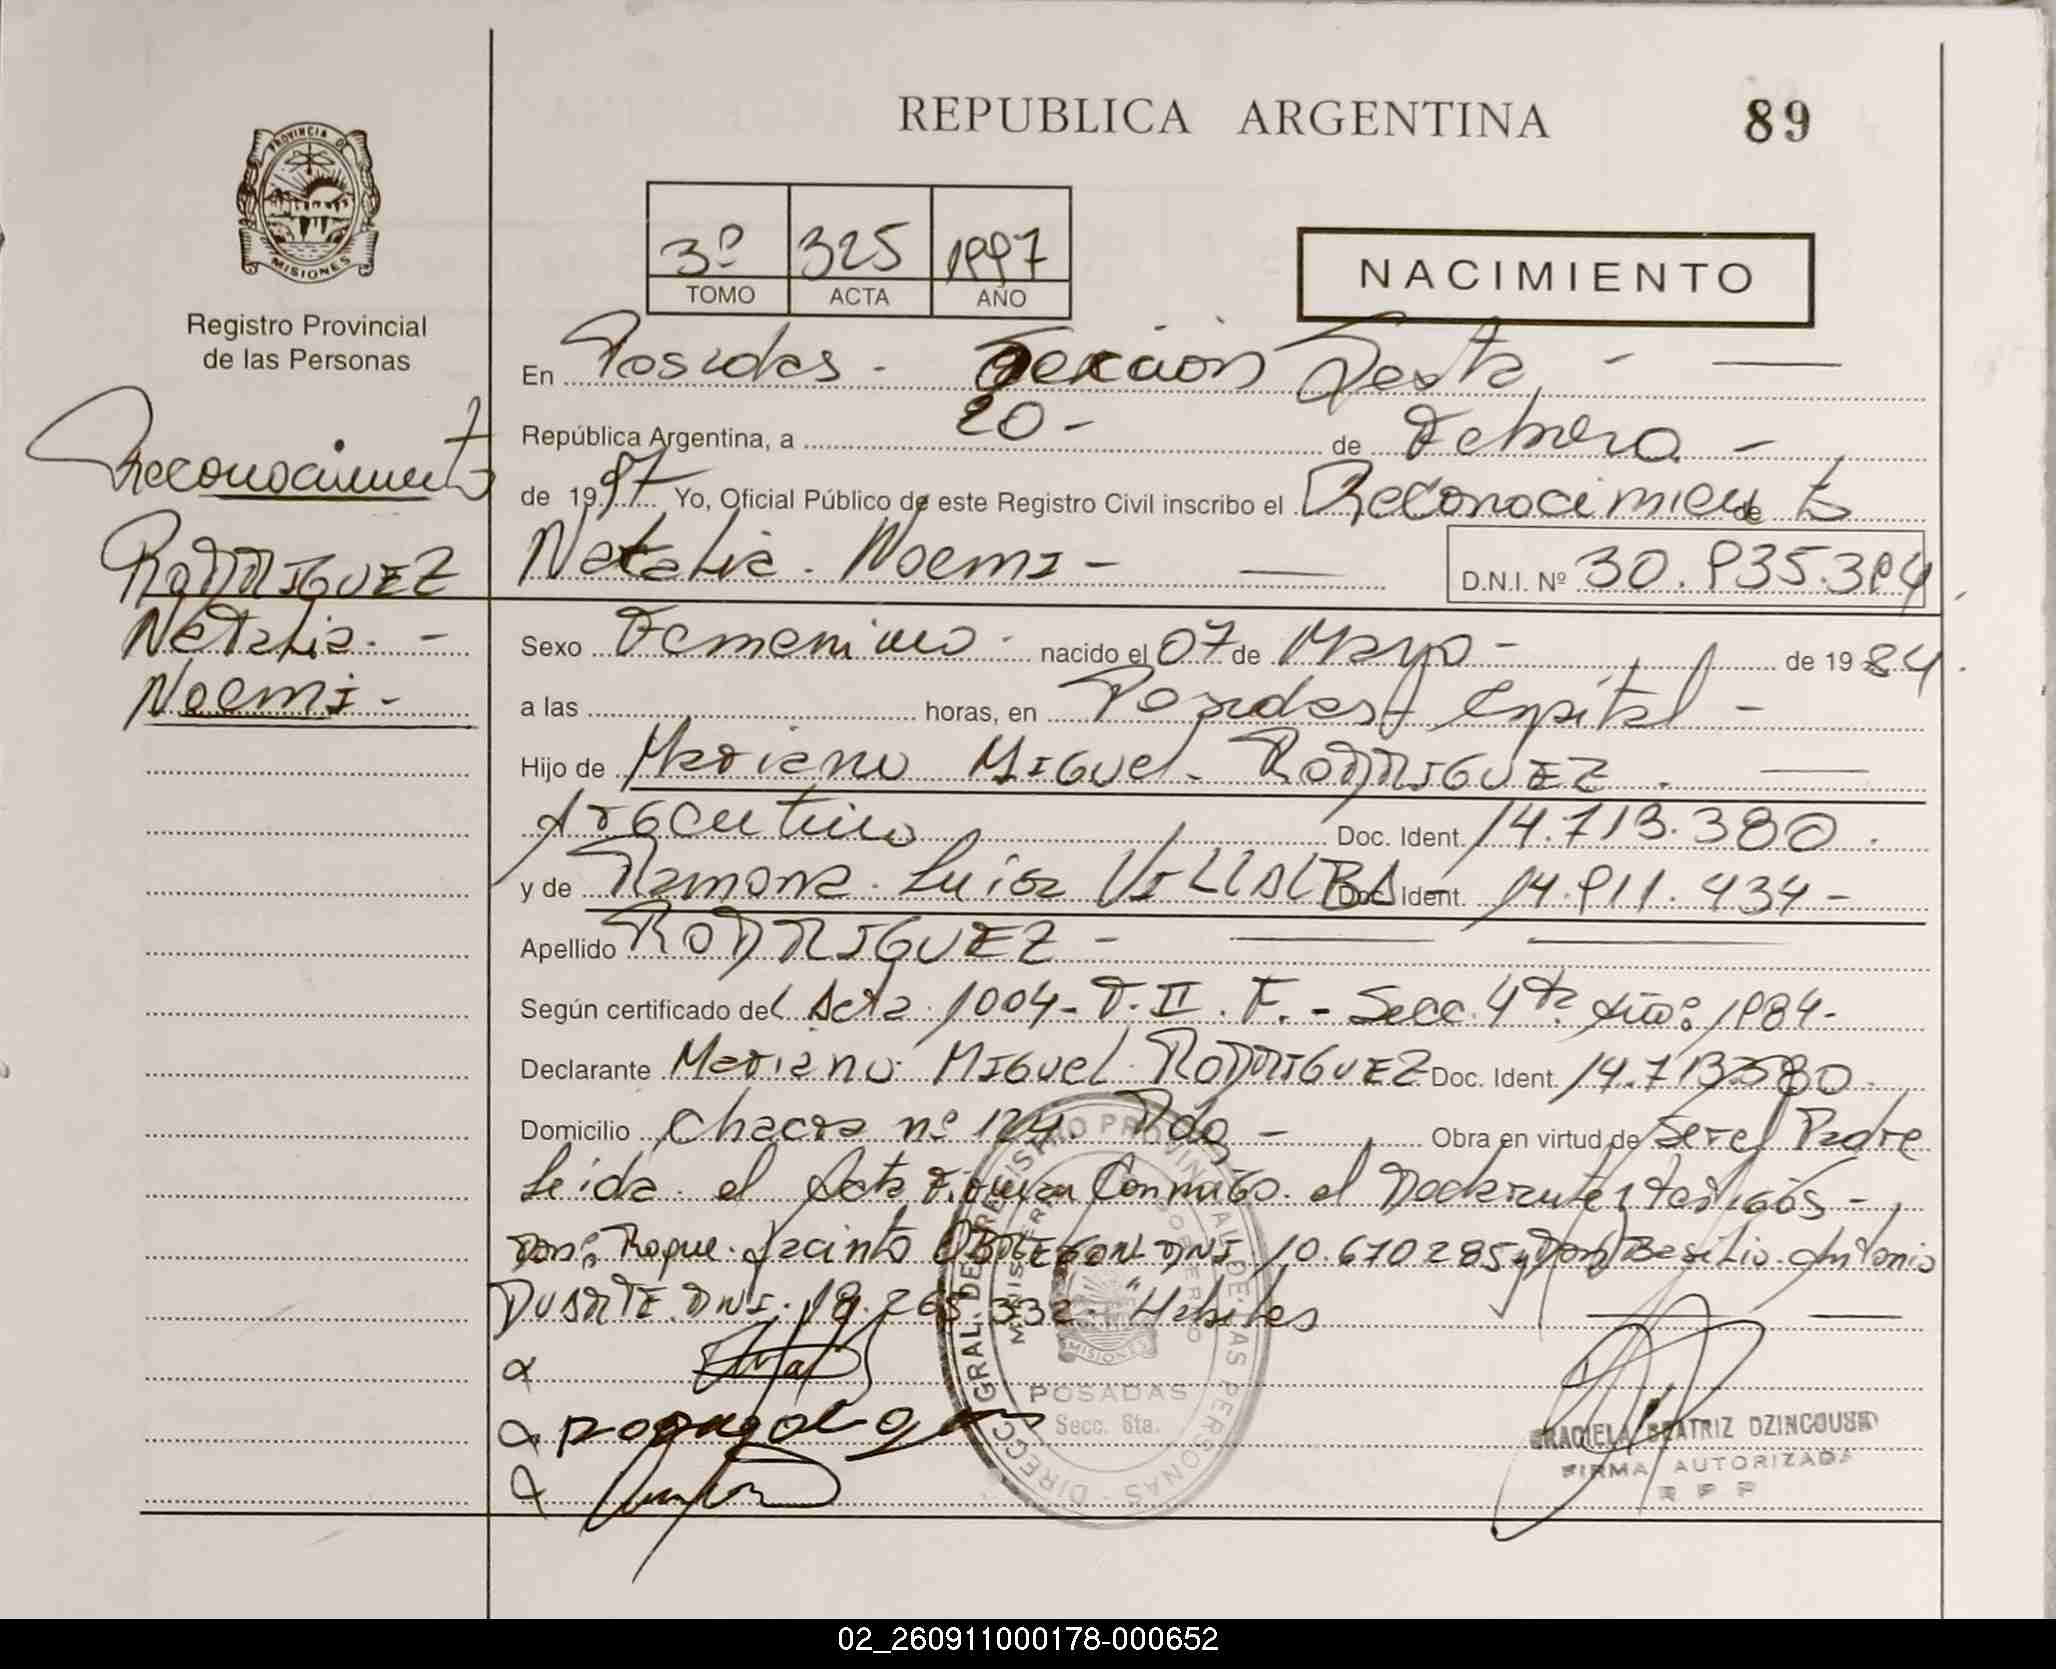 REPUBLICA ARGENTINA
89
PROVINCIA DE
MISIONES
Registro Provincial
de las Personas
3º 325 1997
TOMO ACTA AÑO
NACIMIENTO
En Posadas - Seccion Sexta -
República Argentina, a 20 - de Febrero -
de 1997 Yo, Oficial Público de este Registro Civil inscribo el Reconocimiento de
Natalia Noemi - D.N.I. Nº 30.935.394
Reconocimiento
RODRIGUEZ
Natalia -
Noemi -
Sexo Femenino nacido el 07 de Mayo - de 1984
a las horas, en Posadas Hospital -
Hijo de Mariano Miguel RODRIGUEZ
Argentino Doc. Ident. 14.713.380
y de Ramona Luisa VILLALBA Doc. Ident. 14.911.434 -
Apellido RODRIGUEZ -
Según certificado del Acta 1004 - T. II. F. - Secc. 4ta Año: 1984 -
Declarante Mariano Miguel RODRIGUEZ Doc. Ident. 14.713.380
Domicilio Chacra nº 124. Pdas - Obra en virtud de Ser el Padre
Leida el Acta Firman Conmigo el Declarante y testigos -
Don: Roque Jacinto OBREGON DNI 10.670285 y Don Basilio Antonio
DUARTE DNI. 18.265.332 "Habiles
DIRECC. GRAL. DE REGISTRO PROVINCIAL DE LAS PERSONAS
MINISTERIO GOBIERNO
MISIONES
POSADAS
Secc. 6ta.
GRACIELA BEATRIZ
FIRMA AUTORIZADA
R P P
02_260911000178-000652